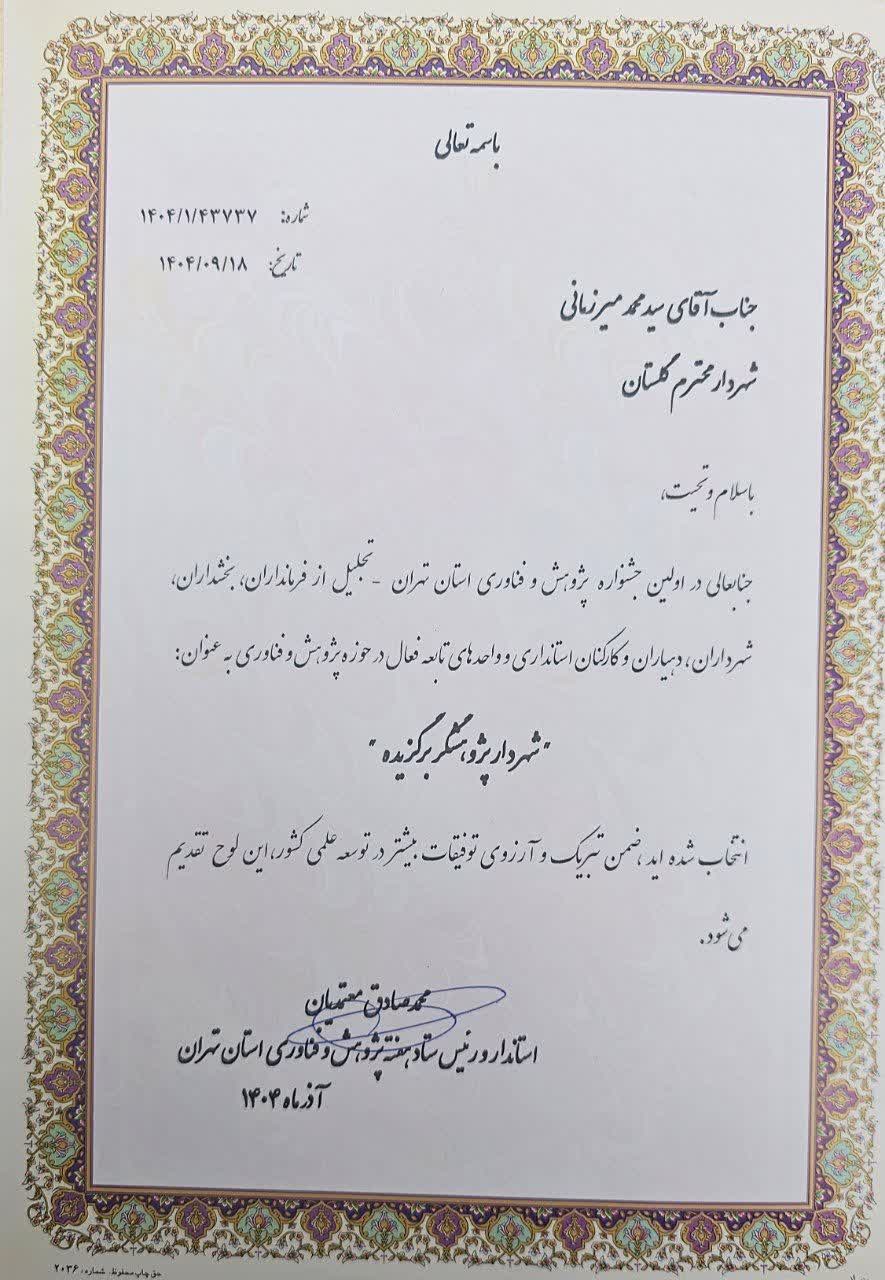 باسمه تعالی
شماره: ۱۴۰۴/۱/۴۳۷۳۷
تاریخ: ۱۴۰۴/۰۹/۱۸
جناب آقای سید محمد میرزمانی
شهردار محترم گلستان
با سلام و تحیت،
جنابعالی در اولین جشنواره پژوهش و فناوری استان تهران - تجلیل از فرمانداران، بخشداران،
شهرداران، دهیاران و کارکنان استانداری و واحدهای تابعه فعال در حوزه پژوهش و فناوری به عنوان:
"شهردار پژوهشگر برگزیده"
انتخاب شده اید، ضمن تبریک و آرزوی توفیقات بیشتر در توسعه علمی کشور، این لوح تقدیم
می شود.
محمدصادق معتمدیان
استاندار و رئیس ستاد هفته پژوهش و فناوری استان تهران
آذر ماه ۱۴۰۴
حق چاپ محفوظ. شماره: ۲۰۳۶